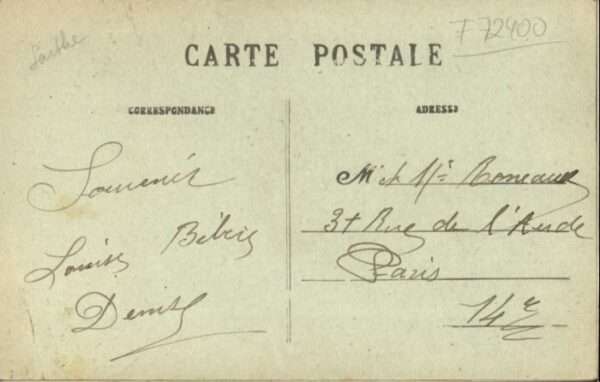 Sarthe
F 72400
CARTE POSTALE
CORRESPONDANCE
ADRESSE
Souvenir
Louise Bébé
Denise
M et Mme
37 Rue de l'Aude
Paris
14e